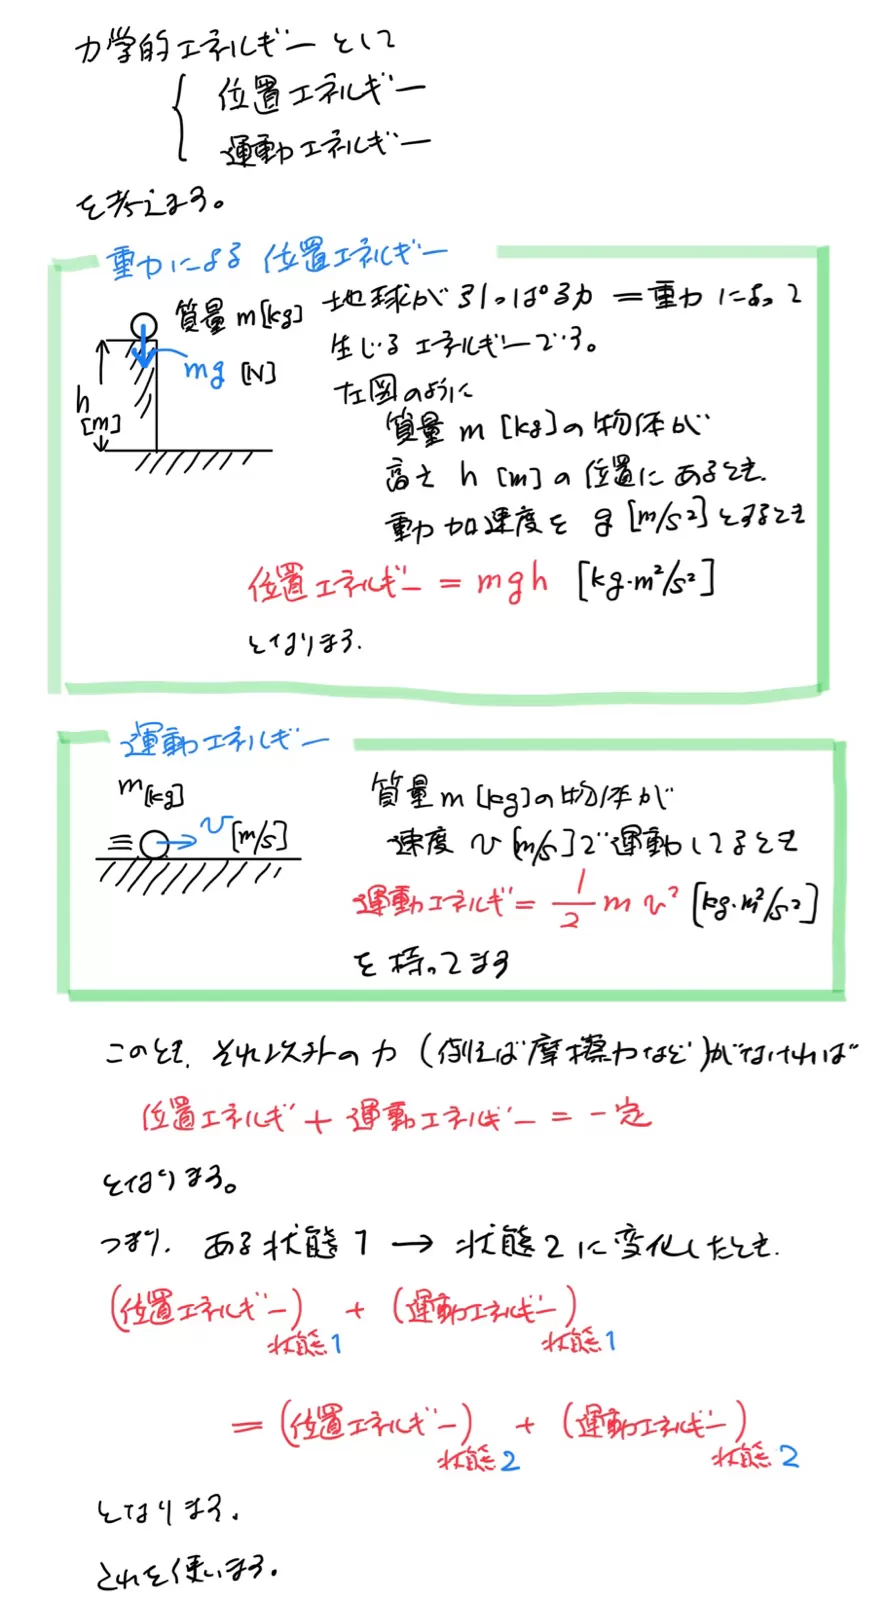 力学的エネルギーとして
位置エネルギー
運動エネルギー
を考えます。
重力による 位置エネルギー
質量 m[kg]
mg [N]
h
[m]
地球が引っぱる力 = 重力によって
生じるエネルギーです。
左図のように
質量 m [kg]の物体が
高さ h [m]の位置にあるとき、
動力加速度を g [m/s²]とするとき
位置エネルギー = mgh [kg·m²/s²]
となります。
運動エネルギー
m[kg]
v[m/s]
質量m[kg]の物体が
速度 v[m/s]で運動してるとき
運動エネルギ= 1/2 m v² [kg·m²/s²]
を持ってます
このとき、それ以外の力 (例えば摩擦力など)がなければ
位置エネルギ + 運動エネルギー = 一定
となります。
つまり、ある状態1 → 状態2に変化したとき、
(位置エネルギー)状態1 + (運動エネルギー)状態1
= (位置エネルギー)状態2 + (運動エネルギー)状態2
となります。
これを使います。